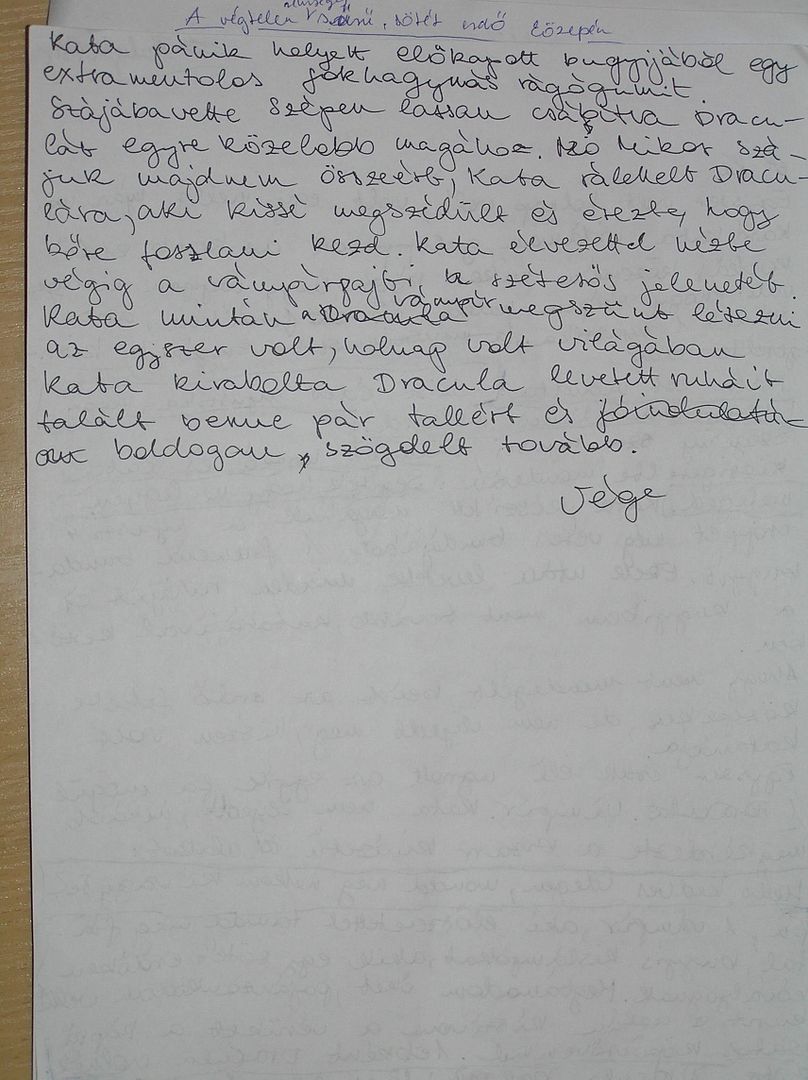 A végtelen sötét erdő közepén
Kata pánik helyett előkapott bugyijából egy
extramentolos fokhagymás rágógumit.
Szájába vette szépen lassan csábítva Dracu-
lát egyre közelebb magához. Mikor szá-
juk majdnem összeért, Kata rálehelt Dracu-
lára, aki kissé megszédült és érezte, hogy
bőre foszlani kezd. Kata élvezettel nézte
végig a vámpírpajti, szétesős jelenetét.
Kata miután a Dracula vámpír megszünt létezni
az egyszer volt, holnap volt világában
Kata kirabolta Dracula levetett ruháit
talált benne pár tallért és jóindulatú-
an boldogan, szögdelt tovább.
Vége